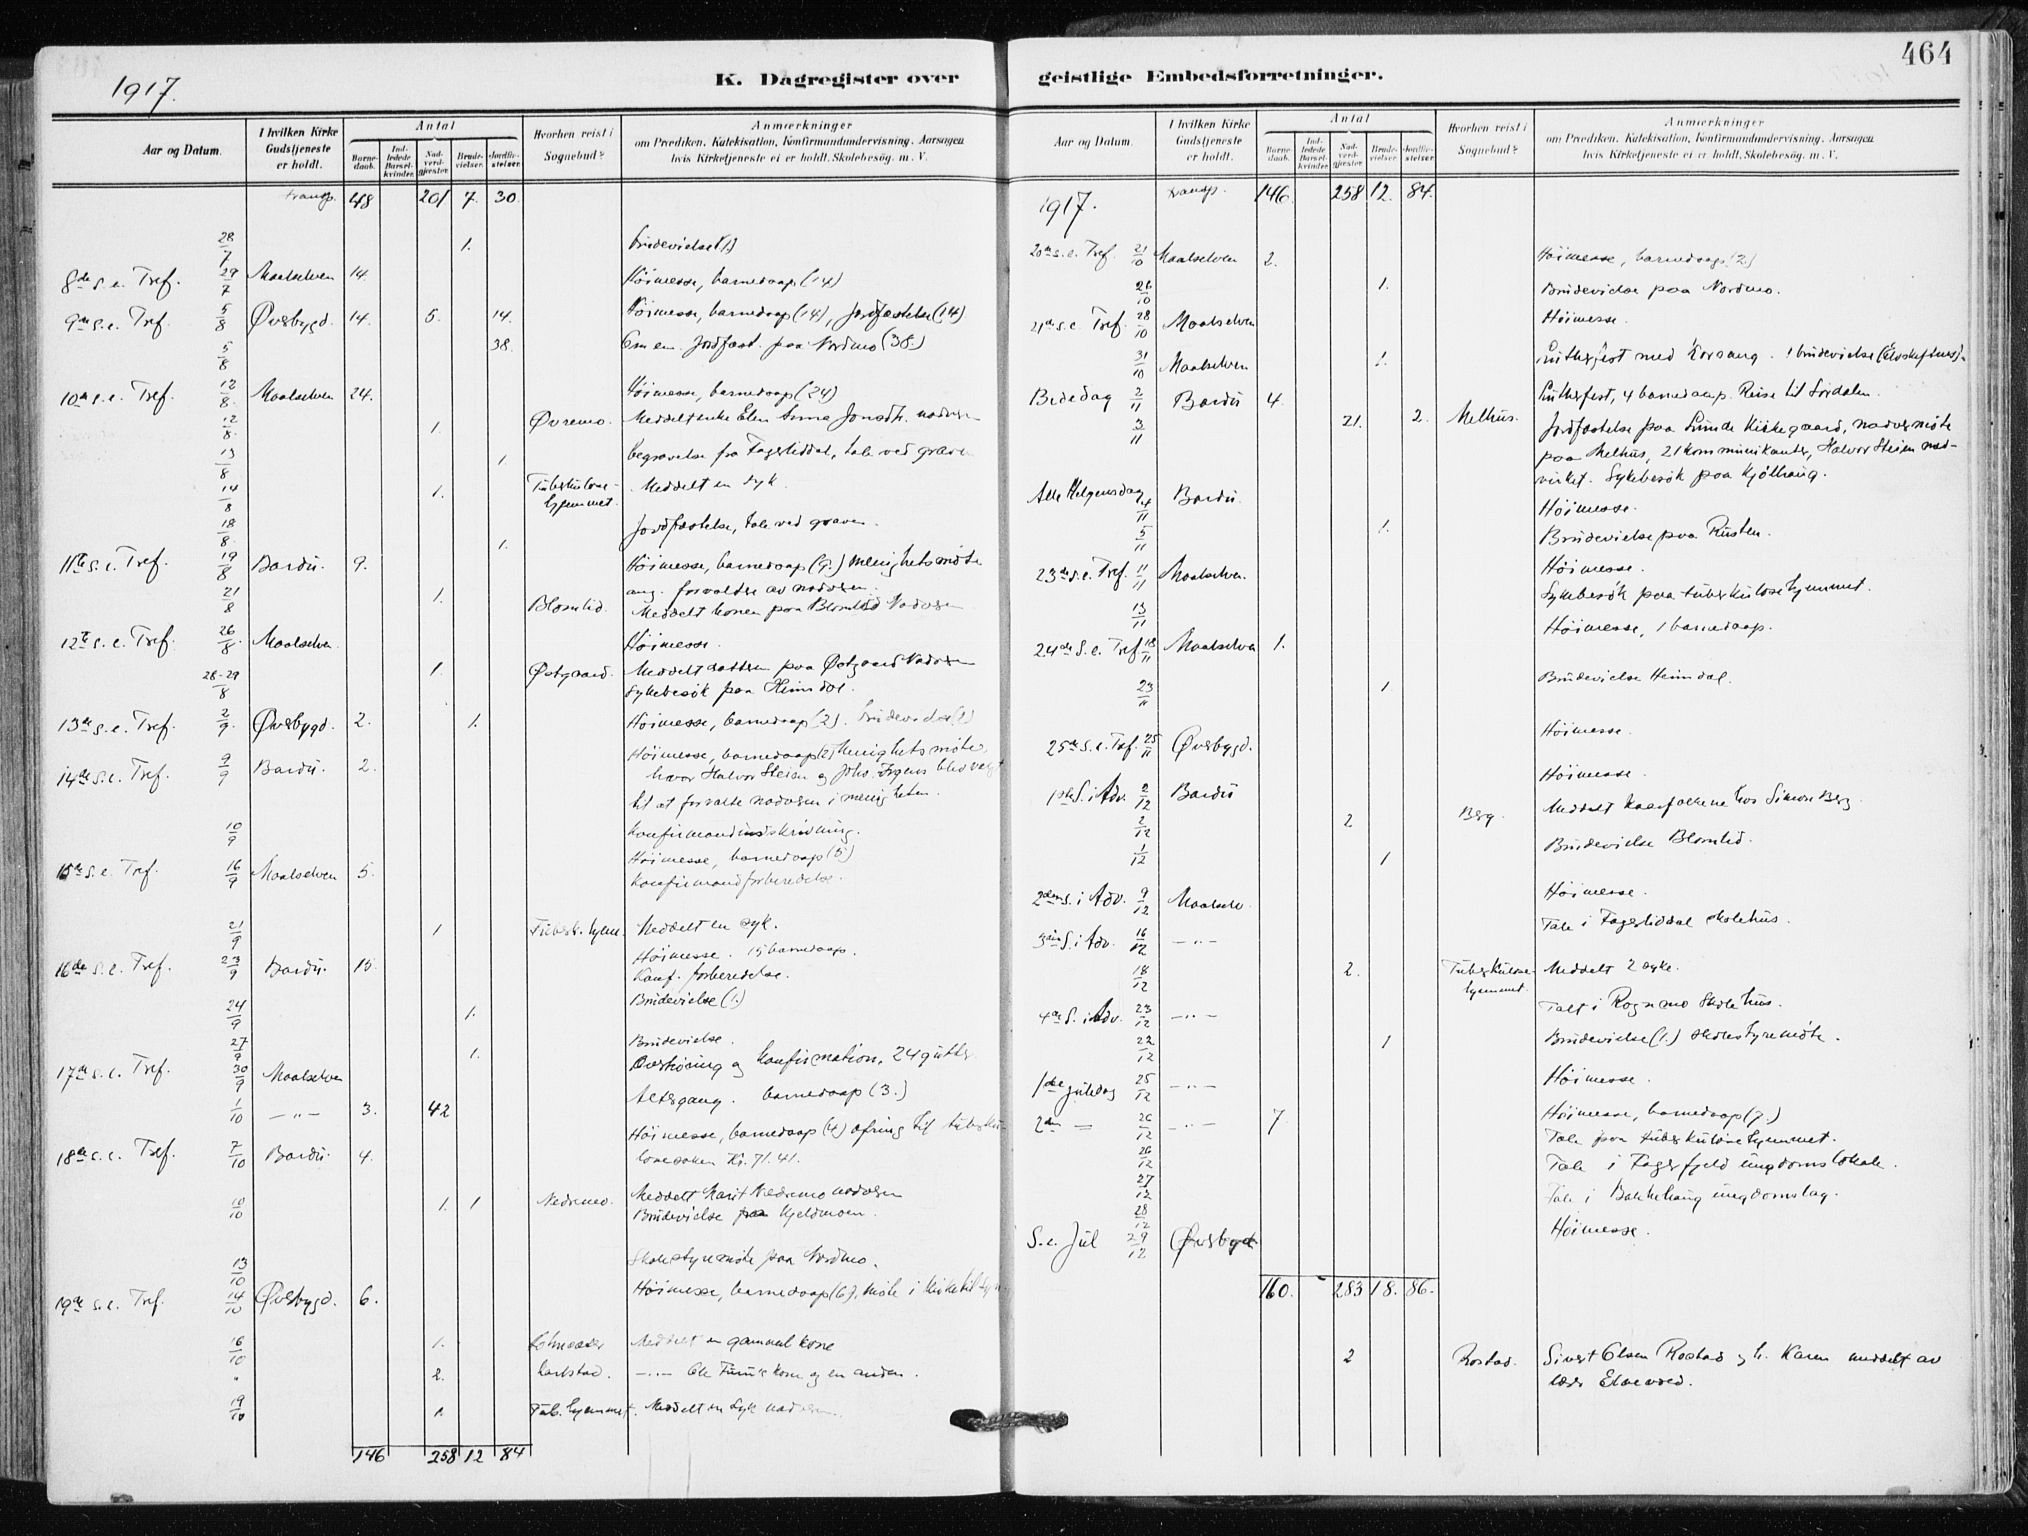 464
1917.
K. Dagregister over
Aar og Datum.
I hvilken Kirke Gudstjeneste er holdt.
Antal
Barne-daab.
Ind-ledede Barsel-kvinder.
Nad-verd-gjester.
Brude-vielser.
Jordfæ-stelser.
Hvorhen reist i Sognebud?
Anmærkninger
om Prædiken, Katekisation, Konfirmandundervisning, Aarsagen
hvis Kirketjeneste ei er holdt, Skolebesøg. m. V.
transp. 48 201 7. 30.
28/7 1. brudevielse (1)
8de s. e. Tref. 29/7 Maalselven 14. Höimesse, barnedaap (14)
9de s. e. Tref. 5/8 Øverbygd. 14. 5. 14. Höimesse, barnedaap (14), Jordfæstelse (14)
5/8 38. Em en. Jordfæst. paa Nordmo (38.)
10de s. e. Tref. 12/8. Maalselven 24. Höimesse, barnedaap (24)
12/8. 1. Øvremo. Meddelt enke Elen Anna Jonsdtr. nadveren
13/8 1. begravelse fra Fagerliddal, tale ved graven
14/8 1. Tuberkulose-hjemmet. Meddelt en syk.
18/8. 1. Jordfæstelse, tale ved graven.
11te s. e. Tref. 19/8 Bardu. 9. Höimesse, barnedaap (9.) menighetsmöte
ang. forvaldse av nadveren.
21/8 1. Blomlid. Meddelt konen paa Blomlid Nadveren
12te s. e. Tref. 26/8. Maalselven. Höimesse.
28-29/8 1. Østgaard. Meddelt datteren paa Østgaard Nadveren
Sykebesök paa Heimdal.
13de s. e. Tref. 2/9. Øverbygd. 2. 1. Höimesse, barnedaap (2). brudevielse (1)
14de s. e. Tref. 9/9 Bardu. 2. Höimesse, barnedaap (2) Menighetsmöte,
hvor Halvor Steien og Johs. Irgens blev valgt
til at forvalte nadveren i menigheten.
10/9 Konfirmandindskrivning.
15de s. e. Tref. 16/9 Maalselven 5. Höimesse, barnedaap (5)
Konfirmandforberedelse.
21/9 1 Tuberk. hjem. Meddelt en syk.
16de s. e. Tref. 23/9 Bardu. 15. Höimesse. 15 barnedaap.
Konf. forberedelse.
24/9 1. Brudevielse (1.)
27/9 1. Brudevielse.
17de s. e. Tref. 30/9 Maalselven Overhöring og Konfirmation, 24 gutter
1/10 — „ — 3. 42 Altergang. barnedaap (3.)
18de s. e. Tref. 7/10 Bardu. 4. Höimesse, barnedaap (4) ofring til tuberku-
losesaken Kr. 71.41.
10/10 1. 1 Nedremo. Meddelt Marit Nedremo nadveren
Brudevielse paa Kjeldmoen.
13/10 Skolestyremöte paa Nordmo.
19de s. e. Tref. 14/10 Øverbygd. 6. Höimesse, barnedaap (6), möte i
16/10 1. Meddelt en gammel kone
" 2. — „ — Ole kone og en anden.
19/10 1. Tub. hjemmet. Meddelt en syk nadveren.
146 258 12 84
geistlige Embedsforretninger.
Aar og Datum.
I hvilken Kirke Gudstjeneste er holdt.
Antal
Barne-daab.
Ind-ledede Barsel-kvinder.
Nad-verd-gjester.
Brude-vielser.
Jordfæ-stelser.
Hvorhen reist i Sognebud?
Anmærkninger
om Prædiken, Katekisation, Konfirmandundervisning, Aarsagen
hvis Kirketjeneste ei er holdt, Skolebesøg. m. V.
1917. transp. 146 258 12. 84.
20de s. e. Tref. 21/10 Maalselven 2. Höimesse, barnedaap (2)
26/10 1. Brudevielse paa Nordmo.
21de s. e. Tref. 28/10 Maalselven Höimesse.
31/10 Maalselven 1. Lutherfest med Korsang. 1 brudevielse
Bededag 2/11 Bardu 4. Lutherfest, 4 barnedaap. Reise til Sørdalen.
3/11 21. 2. Melhus. Jordfæstelse paa Lunde Kirkegaard, nadvermöte
paa Melhus, 21 kommunikanter, Halvor Steien med-
virket. Sykebesök paa Kjölhaug.
Alle Helgensdag 4/11 Bardu. Höimesse.
5/11 1. Brudevielse paa Rusten.
23de s. e. Tref. 11/11 Maalselven. Höimesse.
13/11 Sykebesök paa tuberkulosehjemmet.
24de s. e. Tref. 18/11 Maalselven 1. Höimesse, 1 barnedaap.
23/11 1 Brudevielse Heimdal.
25de s. e. Tref. 25/11 Øverbygd. Höimesse.
1ste S. i Adv. 2/12 Bardu Höimesse.
2/12 2 Berg. Meddelt kaarfolkene hos Simon Berg.
1/12 1 Brudevielse Blomlid.
2den s. i Adv. 9/12 Maalselv. Höimesse.
3die S. i Adv. 16/12 — „ — Tale i Fagerliddal skolehus.
18/12 2. Tuberkulose-hjemmet. Meddelt 2 syke.
4de S. i Adv. 23/12 — „ — Talt i Rognmo Skolehus.
22/12 1 Brudevielse (1.) skolestyremöte.
1ste juledag 25/12 — „ — Höimesse.
2den — 26/12 — „ — 7 Höimesse, barnedaap (7.)
26/12 Tale paa tuberkulosehjemmet.
27/12 Tale i Fagerfjeld ungdomslokale.
28/12 Tale i Bakkehaug ungdomslag.
S. e. Jul 29/12 Øverbygd. Höimesse.
160. 283 18. 86.
2 Rostad. Sivert Olsen Rostad og h. Karen meddelt av